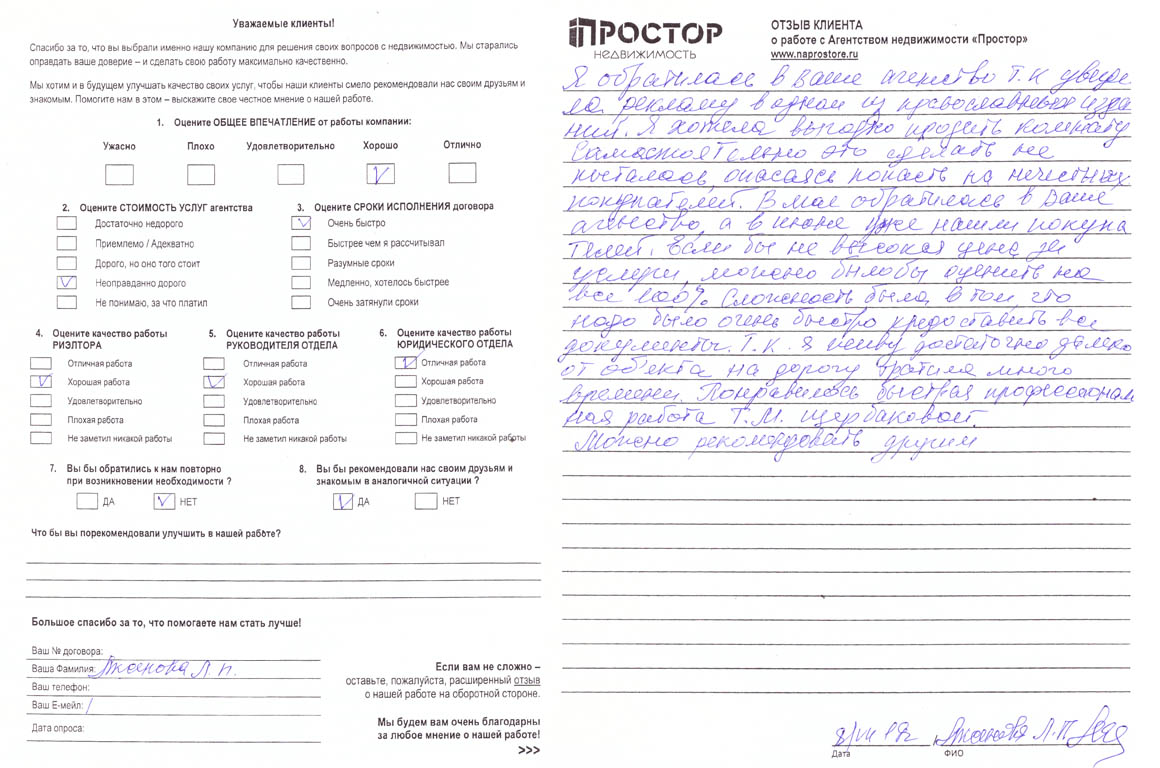 Уважаемые клиенты!
Спасибо за то, что вы выбрали именно нашу компанию для решения своих вопросов с недвижимостью. Мы старались
оправдать ваше доверие – и сделать свою работу максимально качественно.
Мы хотим и в будущем улучшать качество своих услуг, чтобы наши клиенты смело рекомендовали нас своим друзьям и
знакомым. Помогите нам в этом – выскажите свое честное мнение о нашей работе.
1. Оцените ОБЩЕЕ ВПЕЧАТЛЕНИЕ от работы компании:
Ужасно Плохо Удовлетворительно Хорошо Отлично
2. Оцените СТОИМОСТЬ УСЛУГ агентства
Достаточно недорого
Приемлемо / Адекватно
Дорого, но оно того стоит
Неоправданно дорого
Не понимаю, за что платил
3. Оцените СРОКИ ИСПОЛНЕНИЯ договора
Очень быстро
Быстрее чем я рассчитывал
Разумные сроки
Медленно, хотелось быстрее
Очень затянули сроки
4. Оцените качество работы
РИЭЛТОРА
Отличная работа
Хорошая работа
Удовлетворительно
Плохая работа
Не заметил никакой работы
5. Оцените качество работы
РУКОВОДИТЕЛЯ ОТДЕЛА
Отличная работа
Хорошая работа
Удовлетворительно
Плохая работа
Не заметил никакой работы
6. Оцените качество работы
ЮРИДИЧЕСКОГО ОТДЕЛА
Отличная работа
Хорошая работа
Удовлетворительно
Плохая работа
Не заметил никакой работы
7. Вы бы обратились к нам повторно
при возникновении необходимости ?
ДА НЕТ
8. Вы бы рекомендовали нас своим друзьям и
знакомым в аналогичной ситуации ?
ДА НЕТ
Что бы вы порекомендовали улучшить в нашей работе?
Большое спасибо за то, что помогаете нам стать лучше!
Ваш № договора:
Ваша Фамилия: Л. П.
Ваш телефон:
Ваш E-мейл:
Дата опроса:
Если вам не сложно –
оставьте, пожалуйста, расширенный отзыв
о нашей работе на оборотной стороне.
Мы будем вам очень благодарны
за любое мнение о нашей работе!
>>>
ПРОСТОР
НЕДВИЖИМОСТЬ
ОТЗЫВ КЛИЕНТА
о работе с Агентством недвижимости «Простор»
www.naprostore.ru
Я обратилась в ваше агенство т.к увиде
ла рекламу в одном из православных изда
ний. Я хотела выгодно продать комнату
Самостоятельно это сделать не
пыталась, опасаясь попасть на нечестных
покупателей. В мае обратилась в Ваше
агенство, а в июне уже нашли покупа
телей. Если бы не высокая цена за
услуги, можно было бы оценить на
все 100%. Сложность была в том что
надо было очень быстро предоставить все
документы. Т.К. я живу достаточно далеко
от объекта на дорогу тратила много
времени. Понравилась быстрая профессионал
ная работа Т.М. Щербаковой.
Можно рекомендовать другим
Л. П.
Дата ФИО